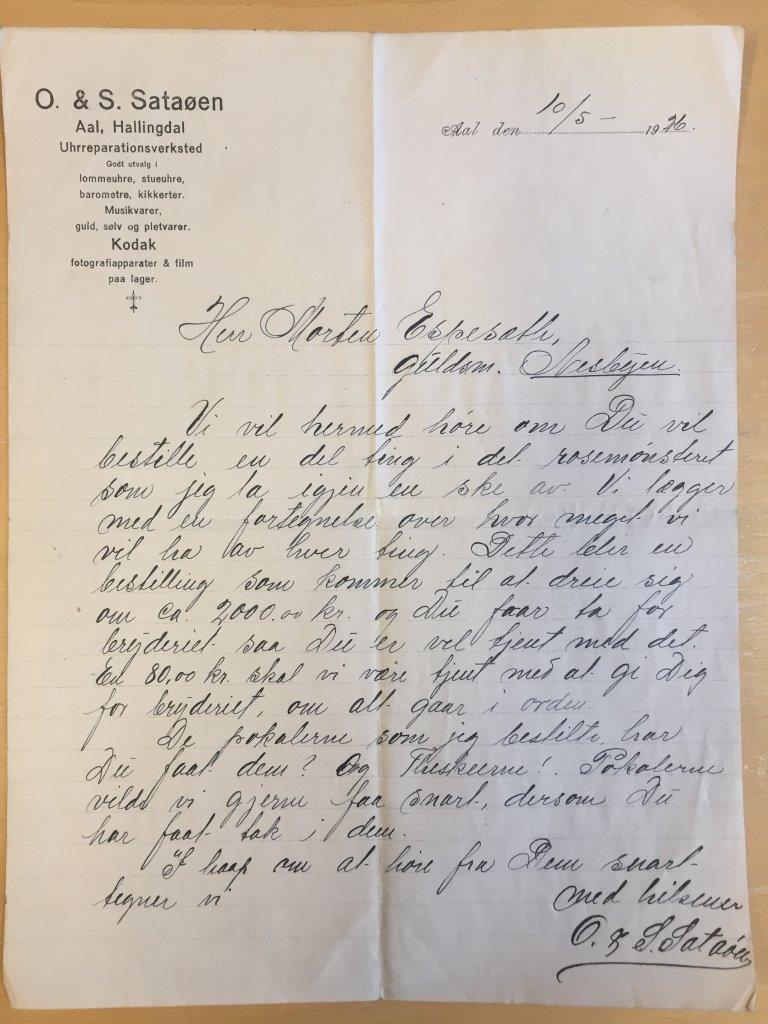 O. & S. Sataøen
Aal, Hallingdal
Uhrreparationsverksted
Godt utvalg i
lommeuhre, stueuhre,
barometre, kikkerter.
Musikvarer,
guld, sølv og pletvarer.
Kodak
fotografiapparater & film
paa lager.
Aal den 10/5 - 1926.
Herr Morten Espeseth,
guldsm. Nesbyen.
Vi vil hermed høre om Du vil
bestille en del ting i det rosemønsteret
som jeg la igjen en ske av. Vi lægger
med en fortegnelse over hvor meget vi
vil ha av hver ting. Dette blir en
bestilling som kommer til at dreie sig
om ca. 2000.00 kr. og Du faar ta for
bryderiet saa Du er vel tjent med det.
En 80,00 kr. skal vi være tjent med at gi Dig
for bryderiet, om alt gaar i orden.
De pokalerne som jeg bestilte har
Du faat dem? Og Theskeerne! Pokalerne
vilde vi gjerne faa snart, dersom Du
har faat tak i dem.
I haap om at høre fra Dem snart
tegner vi
med hilsener
O. & S. Sataøen